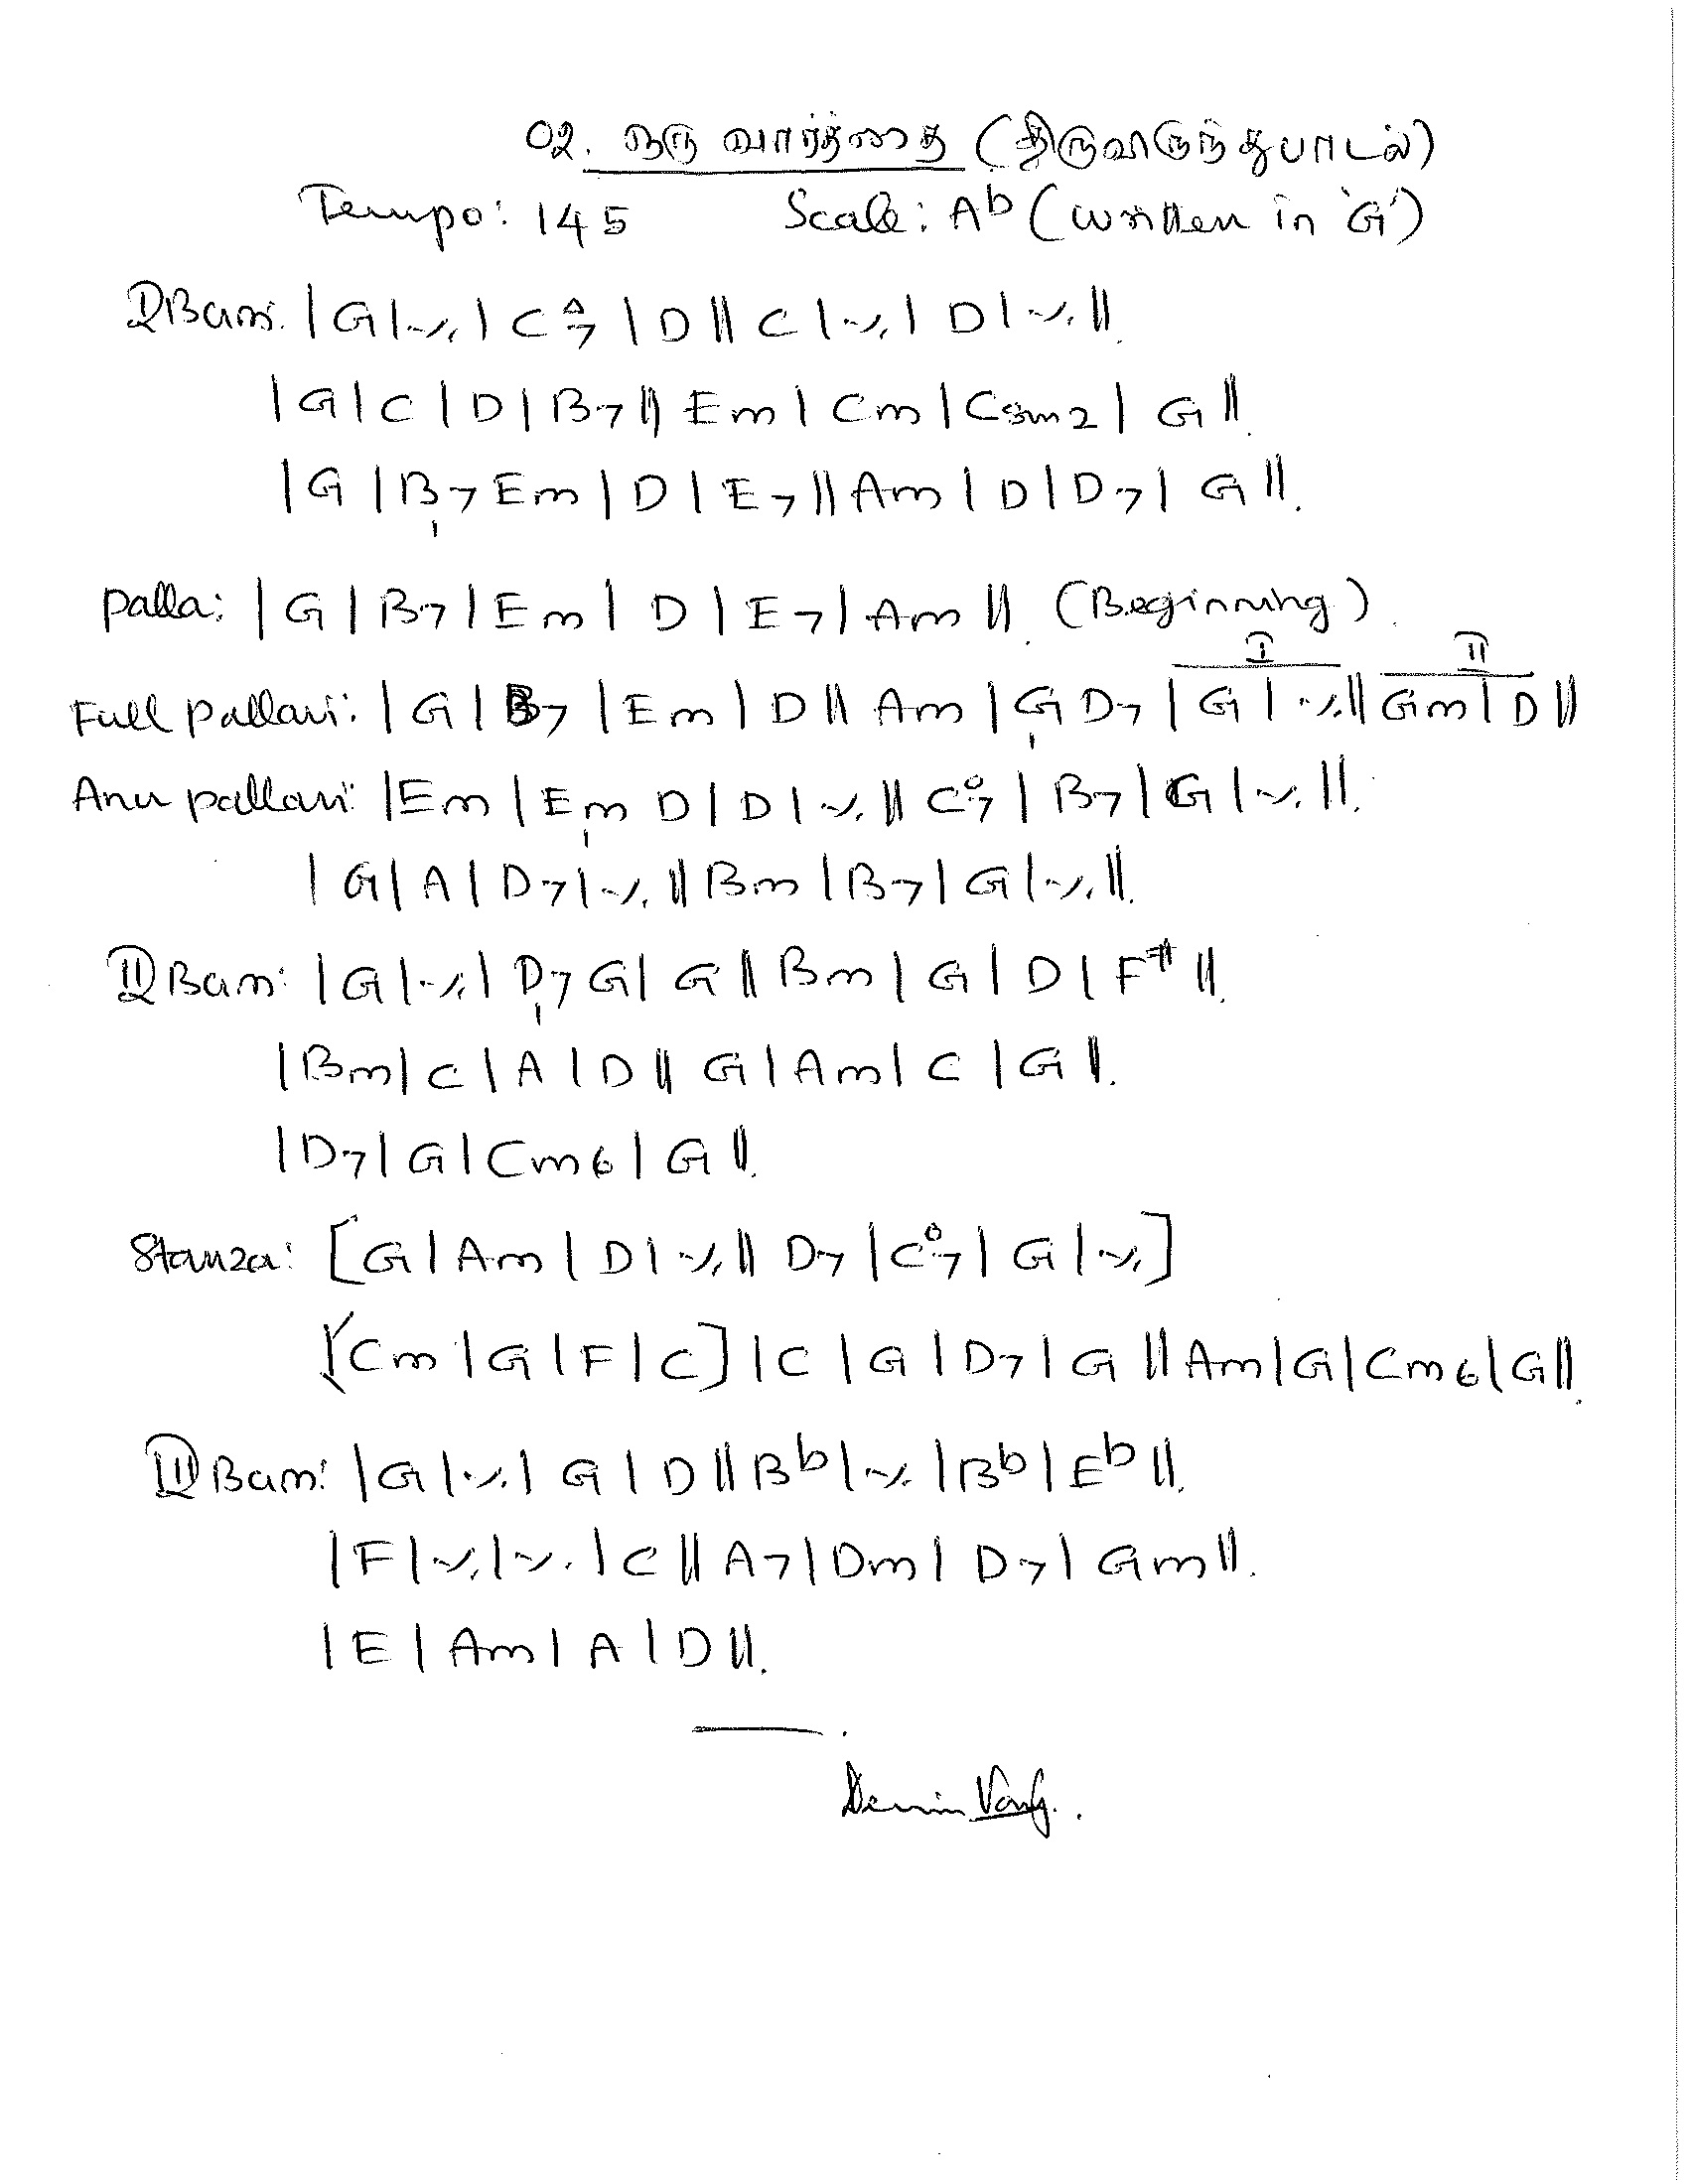 02. ஒரு வார்த்தை (திருவிருந்துபாடல்)
Tempo: 145 Scale: Ab (written in 'G')
I Bam: | G | ٪ | C Δ7 | D || C | ٪ | D | ٪ ||
| G | C | D | B7 || Em | Cm | Csm2 | G ||
| G | B7 Em | D | E7 || Am | D | D7 | G ||.
Palla: | G | B7 | Em | D | E7 | Am || (Beginning)
I II
Full pallavi: | G | B7 | Em | D || Am | G D7 | G | ٪ || Gm | D ||
Anu pallavi: | Em | Em D | D | ٪ || C°7 | B7 | G | ٪ ||.
| G | A | D7 | ٪ || Bm | B7 | G | ٪ ||.
II Bam: | G | ٪ | D7 G | G || Bm | G | D | F# ||.
| Bm | C | A | D || G | Am | C | G ||.
| D7 | G | Cm6 | G ||.
Stanza: [G | Am | D | ٪ || D7 | C°7 | G | ٪]
[Cm | G | F | C] | C | G | D7 | G || Am | G | Cm6 | G ||.
III Bam: | G | ٪ | G | D || Bb | ٪ | Bb | Eb ||.
| F | ٪ | ٪ | C || A7 | Dm | D7 | Gm ||.
| E | Am | A | D ||.